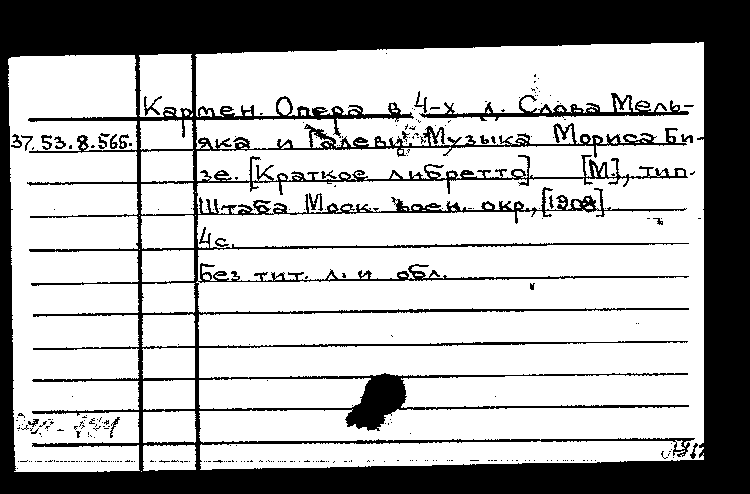 Кармен. Опера в 4-х д. Слова Мель-
37.53.8.565. яка и Галеви. Музыка Мориса Би-
зе. [Краткое либретто]. [М.], тип.
Штаба Моск. воен. окр., [1908].
4с.
Без тит. л. и обл.